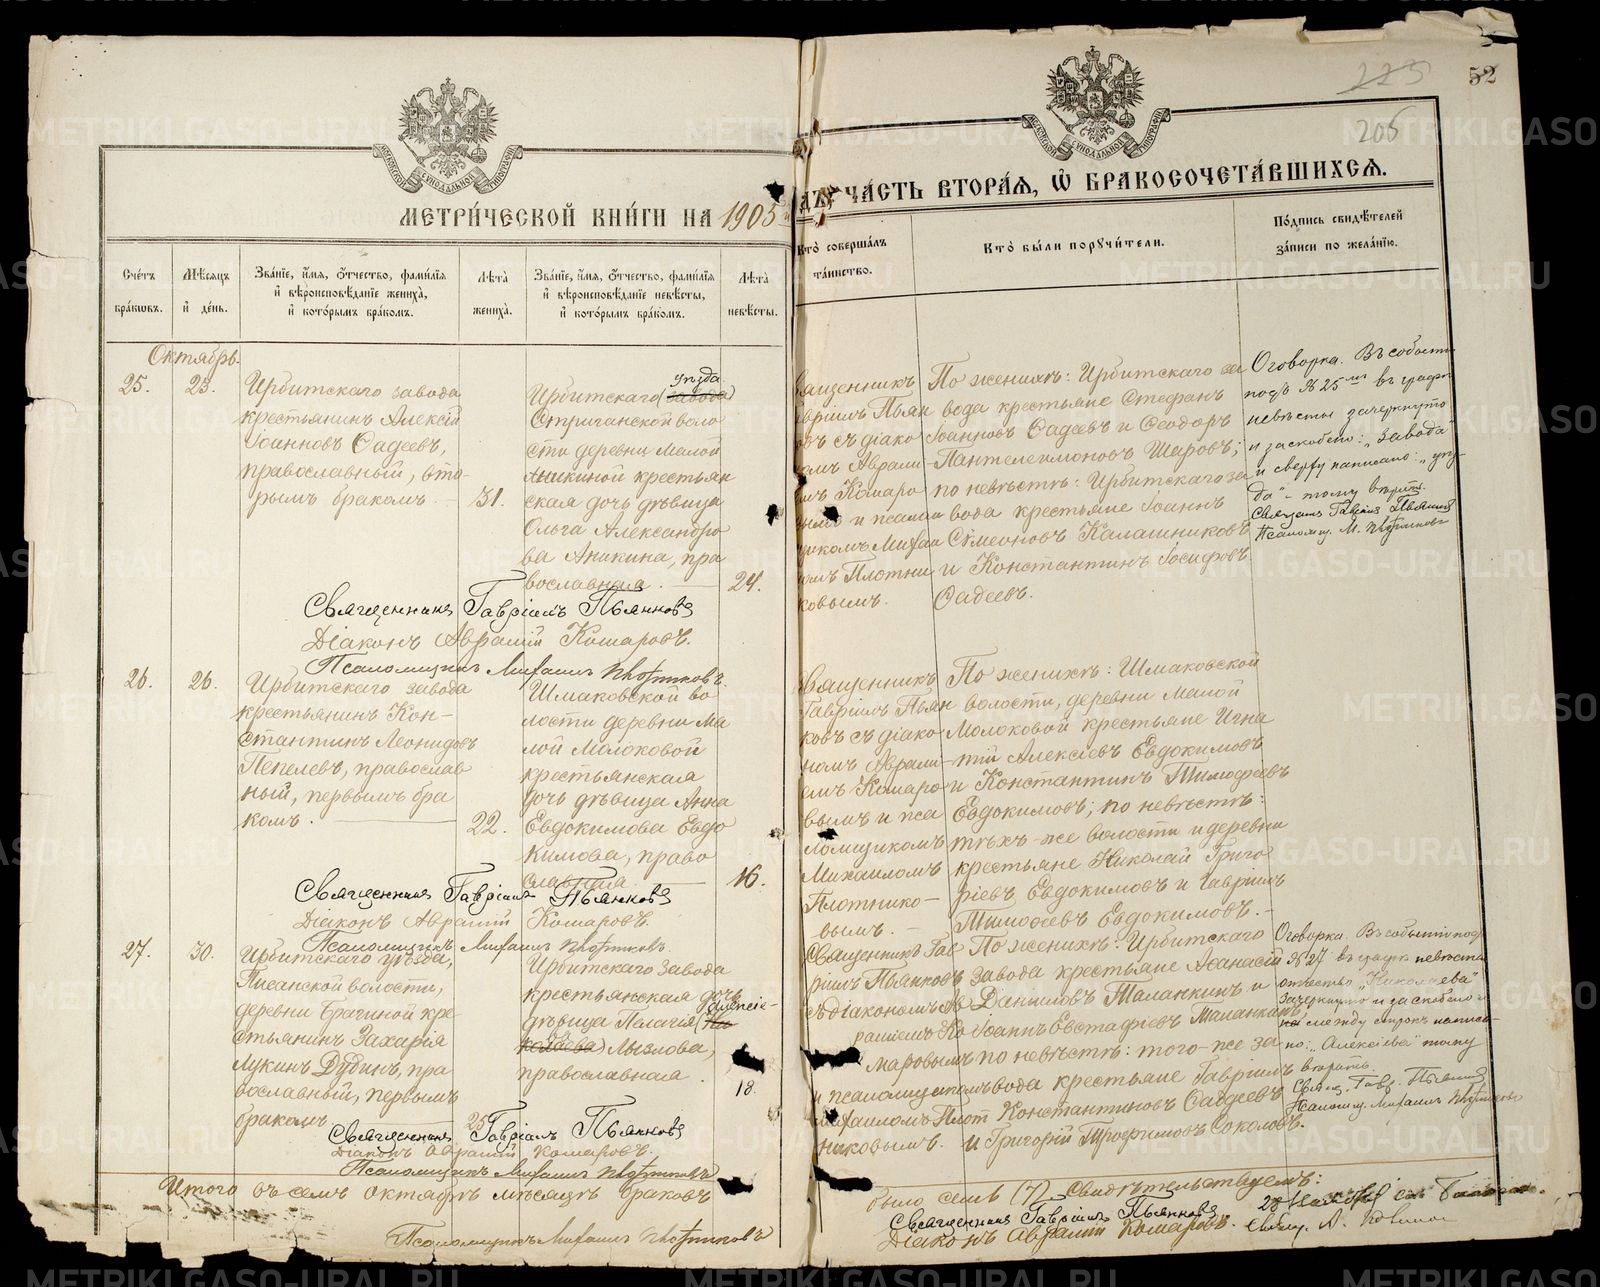 МЕТРИ́ЧЕСКОЙ КНИ́ГИ НА 1905
ЧА́СТЬ ВТОРА́Я, Ѡ҆ БРАКОСОЧЕТА́ВШИХСЯ.
223
52
206
Сче́тъ бра́кѡвъ.
Мѣ́сяцъ и҆ де́нь.
Зва́нїе, и҆́мя, ѻ҆́тчество, фами́лїя и҆ вѣроисповѣ́данїе жениха̀, и҆ кото́рымъ бра́комъ.
Лѣ́та жениха̀.
Зва́нїе, и҆́мя, ѻ҆́тчество, фами́лїя и҆ вѣроисповѣ́данїе невѣ́сты, и҆ кото́рымъ бра́комъ.
Лѣ́та невѣ́сты.
Кто̀ соверша́лъ та́инство.
Кто̀ бы́ли порꙋчи́тели.
По́дпись свидѣ́телей за́писи по жела́нїю.
Октябрь.
25.
25.
Ирбитскаго завода
крестьянинъ Алексій
Іоанновъ Ѳадеевъ,
православный, вто-
рымъ бракомъ.
31.
уѣзда
Ирбитскаго (завода)
Стриганской воло
сти деревни Малой
Аникиной крестьян
ская дочь дѣвица
Ольга Александро
ва Аникина, пра
вославная.
24.
Священникъ
Гавріилъ Пьян
ковъ съ діако
номъ Аврамі-
емъ Комаро
вымъ и псалом
щикомъ Михаи
ломъ Плотни
ковымъ.
По женихѣ: Ирбитскаго за
вода крестьяне Стефанъ
Іоанновъ Ѳадеевъ и Ѳеодоръ
Пантелеимоновъ Шаровъ;
по невѣстѣ: Ирбитскаго за
вода крестьяне Іоаннъ
Сѵмеоновъ Калашниковъ
и Константинъ Іосифовъ
Ѳадеевъ.
Оговорка. Въ событіи
подъ № 25мъ въ графѣ
невѣсты зачеркнуто
и заскоблено: „завода"
и сверху написано: „уѣз-
да" - тому вѣрить.
Священ. Гавріилъ Пьянковъ
Псаломщ. М. Плотниковъ
Священникъ Гавріилъ Пьянковъ
Діаконъ Аврамій Комаровъ.
Псаломщикъ Михаилъ Плотниковъ.
26.
26.
Ирбитскаго завода
крестьянинъ Кон-
стантинъ Леонидовъ
Пепелевъ, православ
ный, первымъ бра
комъ.
22.
Шмаковской во
лости деревни Ма
лой Молоковой
крестьянская
дочь дѣвица Анна
Евдокимова Евдо
кимова, право
славная.
16.
Священникъ
Гавріилъ Пьян
ковъ съ діако
номъ Аврамі-
емъ Комаро
вымъ и пса
ломщикомъ
Михаиломъ
Плотнико-
вымъ.
По женихѣ: Шмаковской
волости, деревни Малой
Молоковой крестьяне Игна
тій Алексіевъ Евдокимовъ
и Константинъ Тимофеевъ
Евдокимовъ; по невѣстѣ:
тѣхъ-же волости и деревни
крестьяне Николай Григо
ріевъ Евдокимовъ и Гавріилъ
Тимофеевъ Евдокимовъ.
Священникъ Гавріилъ Пьянковъ
Діаконъ Аврамій Комаровъ.
Псаломщикъ Михаилъ Плотниковъ.
27.
30.
Ирбитскаго уѣзда,
Писанской волости,
деревни Брагиной кре
стьянинъ Захарія
Лукинъ Дубинъ, пра
вославный, первымъ
бракомъ
25
Ирбитскаго завода
крестьянская дочь
Алексіе-
дѣвица Пелагія (Ни
колаева) Мызлова,
православная.
18.
Священникъ Гав
ріилъ Пьянковъ
съ діакономъ Ав
раміемъ Ко
маровымъ
и псаломщикомъ
Михаиломъ Плот
никовымъ.
По женихѣ: Ирбитскаго
завода крестьяне Аѳанасій
Даніиловъ Таланкинъ и
Іоаннъ Евстафіевъ Таланкинъ,
по невѣстѣ: того-же за
вода крестьяне Гавріилъ
Константиновъ Ѳадеевъ
и Григорій Трофимовъ Соколовъ.
Оговорка. Въ событіи под
№ 27 въ графѣ невѣсты
отчество „Николаева"
зачеркнуто и заскоблено и
между строкъ написа-
но: „Алексіева" тому
вѣрить.
Свящ. Гавр. Пьянковъ
Псаломщ. Михаилъ Плотниковъ
Священникъ Гавріилъ Пьянковъ
Діаконъ Аврамій Комаровъ.
Псаломщикъ Михаилъ Плотниковъ
Итого въ семъ октябрѣ мѣсяцѣ браковъ
было семь (7) свидѣтельствуемъ:
Священникъ Гавріилъ Пьянковъ
Діаконъ Аврамій Комаровъ.
Псаломщикъ Михаилъ Плотниковъ
METRIKI.GASO-URAL.RU